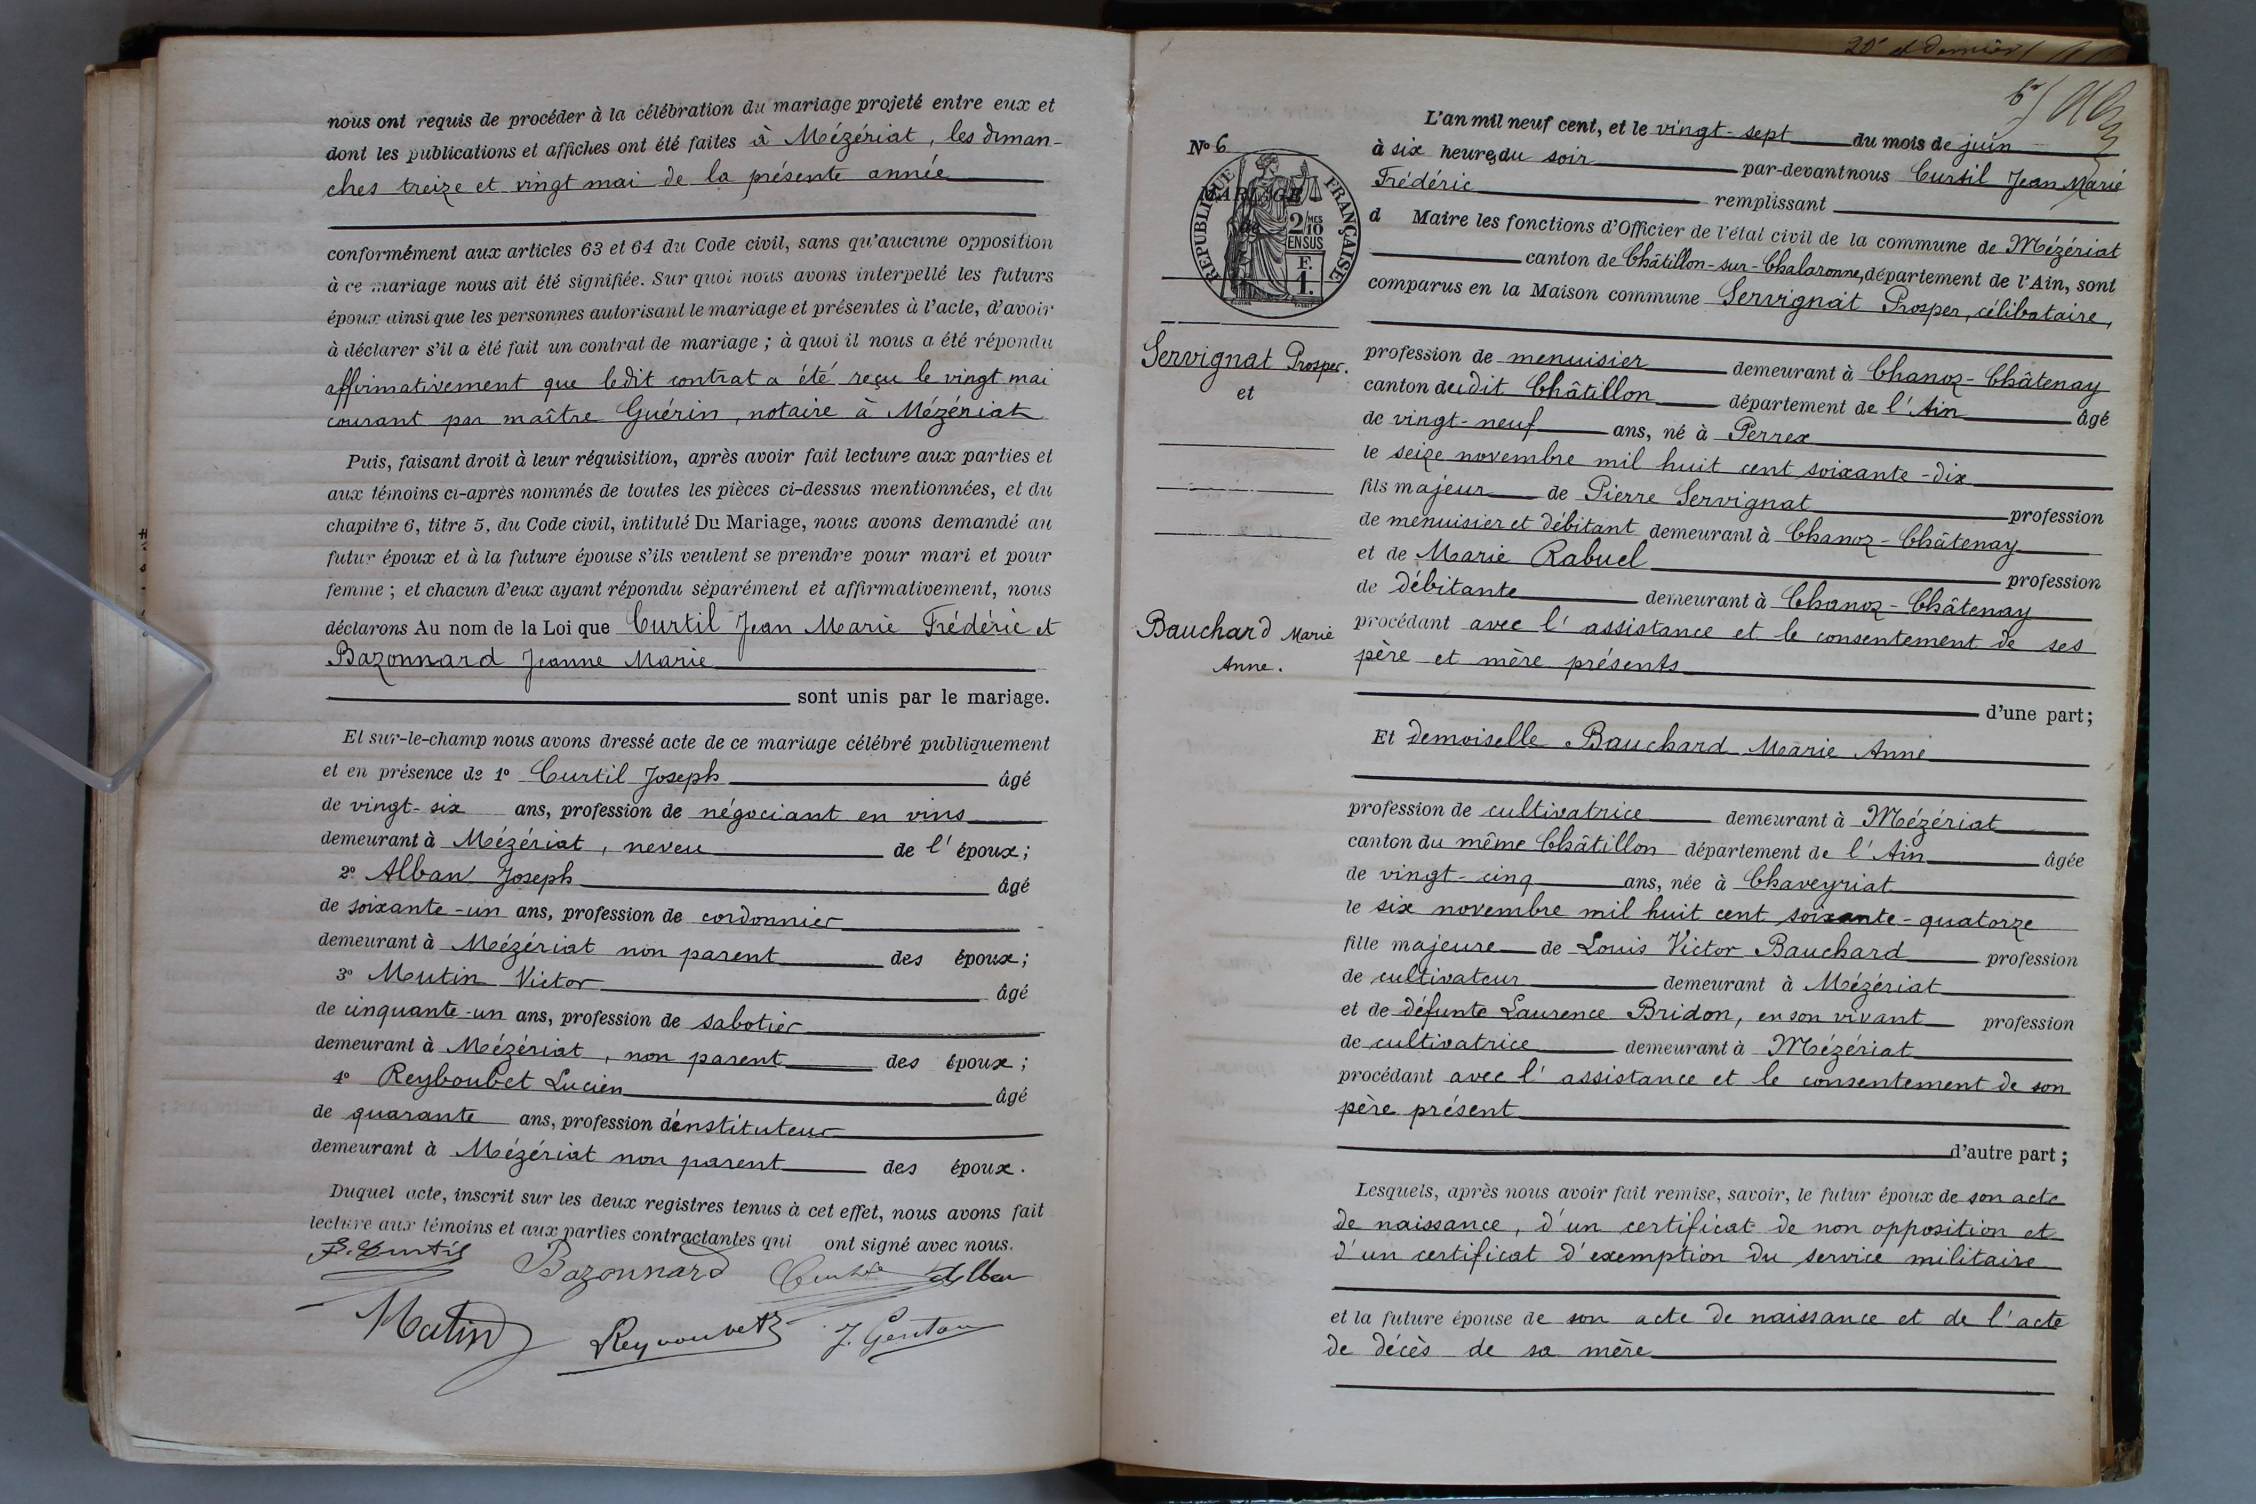 nous ont requis de procéder à la célébration du mariage projeté entre eux et
dont les publications et affiches ont été faites à Mézériat, les diman-
ches treize et vingt mai de la présente année
conformément aux articles 63 et 64 du Code civil, sans qu'aucune opposition
à ce mariage nous ait été signifiée. Sur quoi nous avons interpellé les futurs
époux ainsi que les personnes autorisant le mariage et présentes à l'acte, d'avoir
à déclarer s'il a été fait un contrat de mariage ; à quoi il nous a été répondu
affirmativement que ledit contrat a été reçu le vingt mai
courant par maître Guérin, notaire à Mézériat
Puis, faisant droit à leur réquisition, après avoir fait lecture aux parties et
aux témoins ci-après nommés de toutes les pièces ci-dessus mentionnées, et du
chapitre 6, titre 5, du Code civil, intitulé Du Mariage, nous avons demandé au
futur époux et à la future épouse s'ils veulent se prendre pour mari et pour
femme ; et chacun d'eux ayant répondu séparément et affirmativement, nous
déclarons Au nom de la Loi que Curtil Jean Marie Frédéric et
Bazonnard Jeanne Marie
sont unis par le mariage.
Et sur-le-champ nous avons dressé acte de ce mariage célébré publiquement
et en présence de 1° Curtil Joseph âgé
de vingt-six ans, profession de négociant en vins
demeurant à Mézériat, neveu de l'époux ;
2° Alban Joseph âgé
de soixante-un ans, profession de cordonnier
demeurant à Mézériat non parent des époux ;
3° Mutin Victor âgé
de cinquante-un ans, profession de sabotier
demeurant à Mézériat, non parent des époux ;
4° Reyboubet Lucien âgé
de quarante ans, profession d'instituteur
demeurant à Mézériat non parent des époux.
Duquel acte, inscrit sur les deux registres tenus à cet effet, nous avons fait
lecture aux témoins et aux parties contractantes qui ont signé avec nous.
Bazonnard Alban
Mutin
20e et dernier
6e
N° 6
MARIAGE
de
RÉPUBLIQUE FRANÇAISE
2/10 MES
EN SUS
F.
1.
Servignat Prosper.
et
Bauchard Marie
Anne.
L'an mil neuf cent, et le vingt-sept du mois de juin
à six heures du soir par-devant nous Curtil Jean Marie
Frédéric remplissant
d Maire les fonctions d'Officier de l'état civil de la commune de Mézériat
canton de Châtillon-sur-Chalaronne, département de l'Ain, sont
comparus en la Maison commune Servignat Prosper, célibataire,
profession de menuisier demeurant à Chanoz-Châtenay
canton dudit Châtillon département de l'Ain âgé
de vingt-neuf ans, né à Perrex
le seize novembre mil huit cent soixante-dix
fils majeur de Pierre Servignat profession
de menuisier et débitant demeurant à Chanoz-Châtenay
et de Marie Rabuel profession
de débitante demeurant à Chanoz-Châtenay
procédant avec l'assistance et le consentement de ses
père et mère présents
d'une part ;
Et demoiselle Bauchard Marie Anne
profession de cultivatrice demeurant à Mézériat
canton du même Châtillon département de l'Ain âgée
de vingt-cinq ans, née à Chaveyriat
le six novembre mil huit cent soixante-quatorze
fille majeure de Louis Victor Bauchard profession
de cultivateur demeurant à Mézériat
et de défunte Laurence Bridon, en son vivant profession
de cultivatrice demeurant à Mézériat
procédant avec l'assistance et le consentement de son
père présent
d'autre part ;
Lesquels, après nous avoir fait remise, savoir, le futur époux de son acte
de naissance, d'un certificat de non opposition et
d'un certificat d'exemption du service militaire
et la future épouse de son acte de naissance et de l'acte
de décès de sa mère